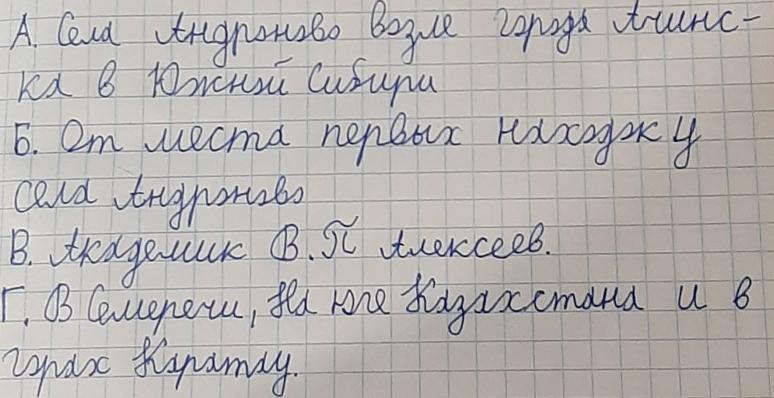 А. Села Андроново возле города Ачинс-
ка в Южной Сибири
Б. От места первых находжк у
села Андроново
В. Академик В.П Алексеев.
Г. В Семеречи, На юге Казахстана и в
горах Каратау.